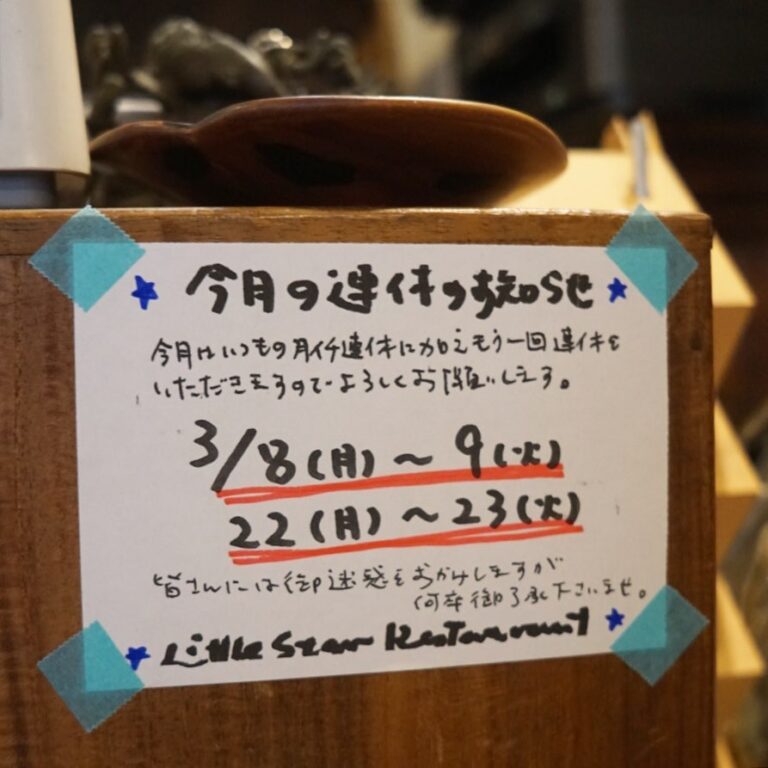 ★今月の連休のお知らせ★
今月はいつもの月イチ連休に加えもう一回連休を
いただきますのでよろしくお願いします。
3/8(月)～9(火)
22(月)～23(火)
皆さんには御迷惑をおかけしますが
何卒御了承下さいませ。
★Little Star Restaurant★